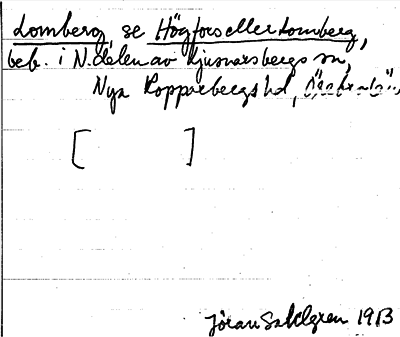 Lomberg, se Högfors eller Lomberg,
beb. i N. delen av Ljusnarsbergs sn,
Nya Kopparbergs hd, Örebro län
[ ]
Jöran Sahlgren 1913